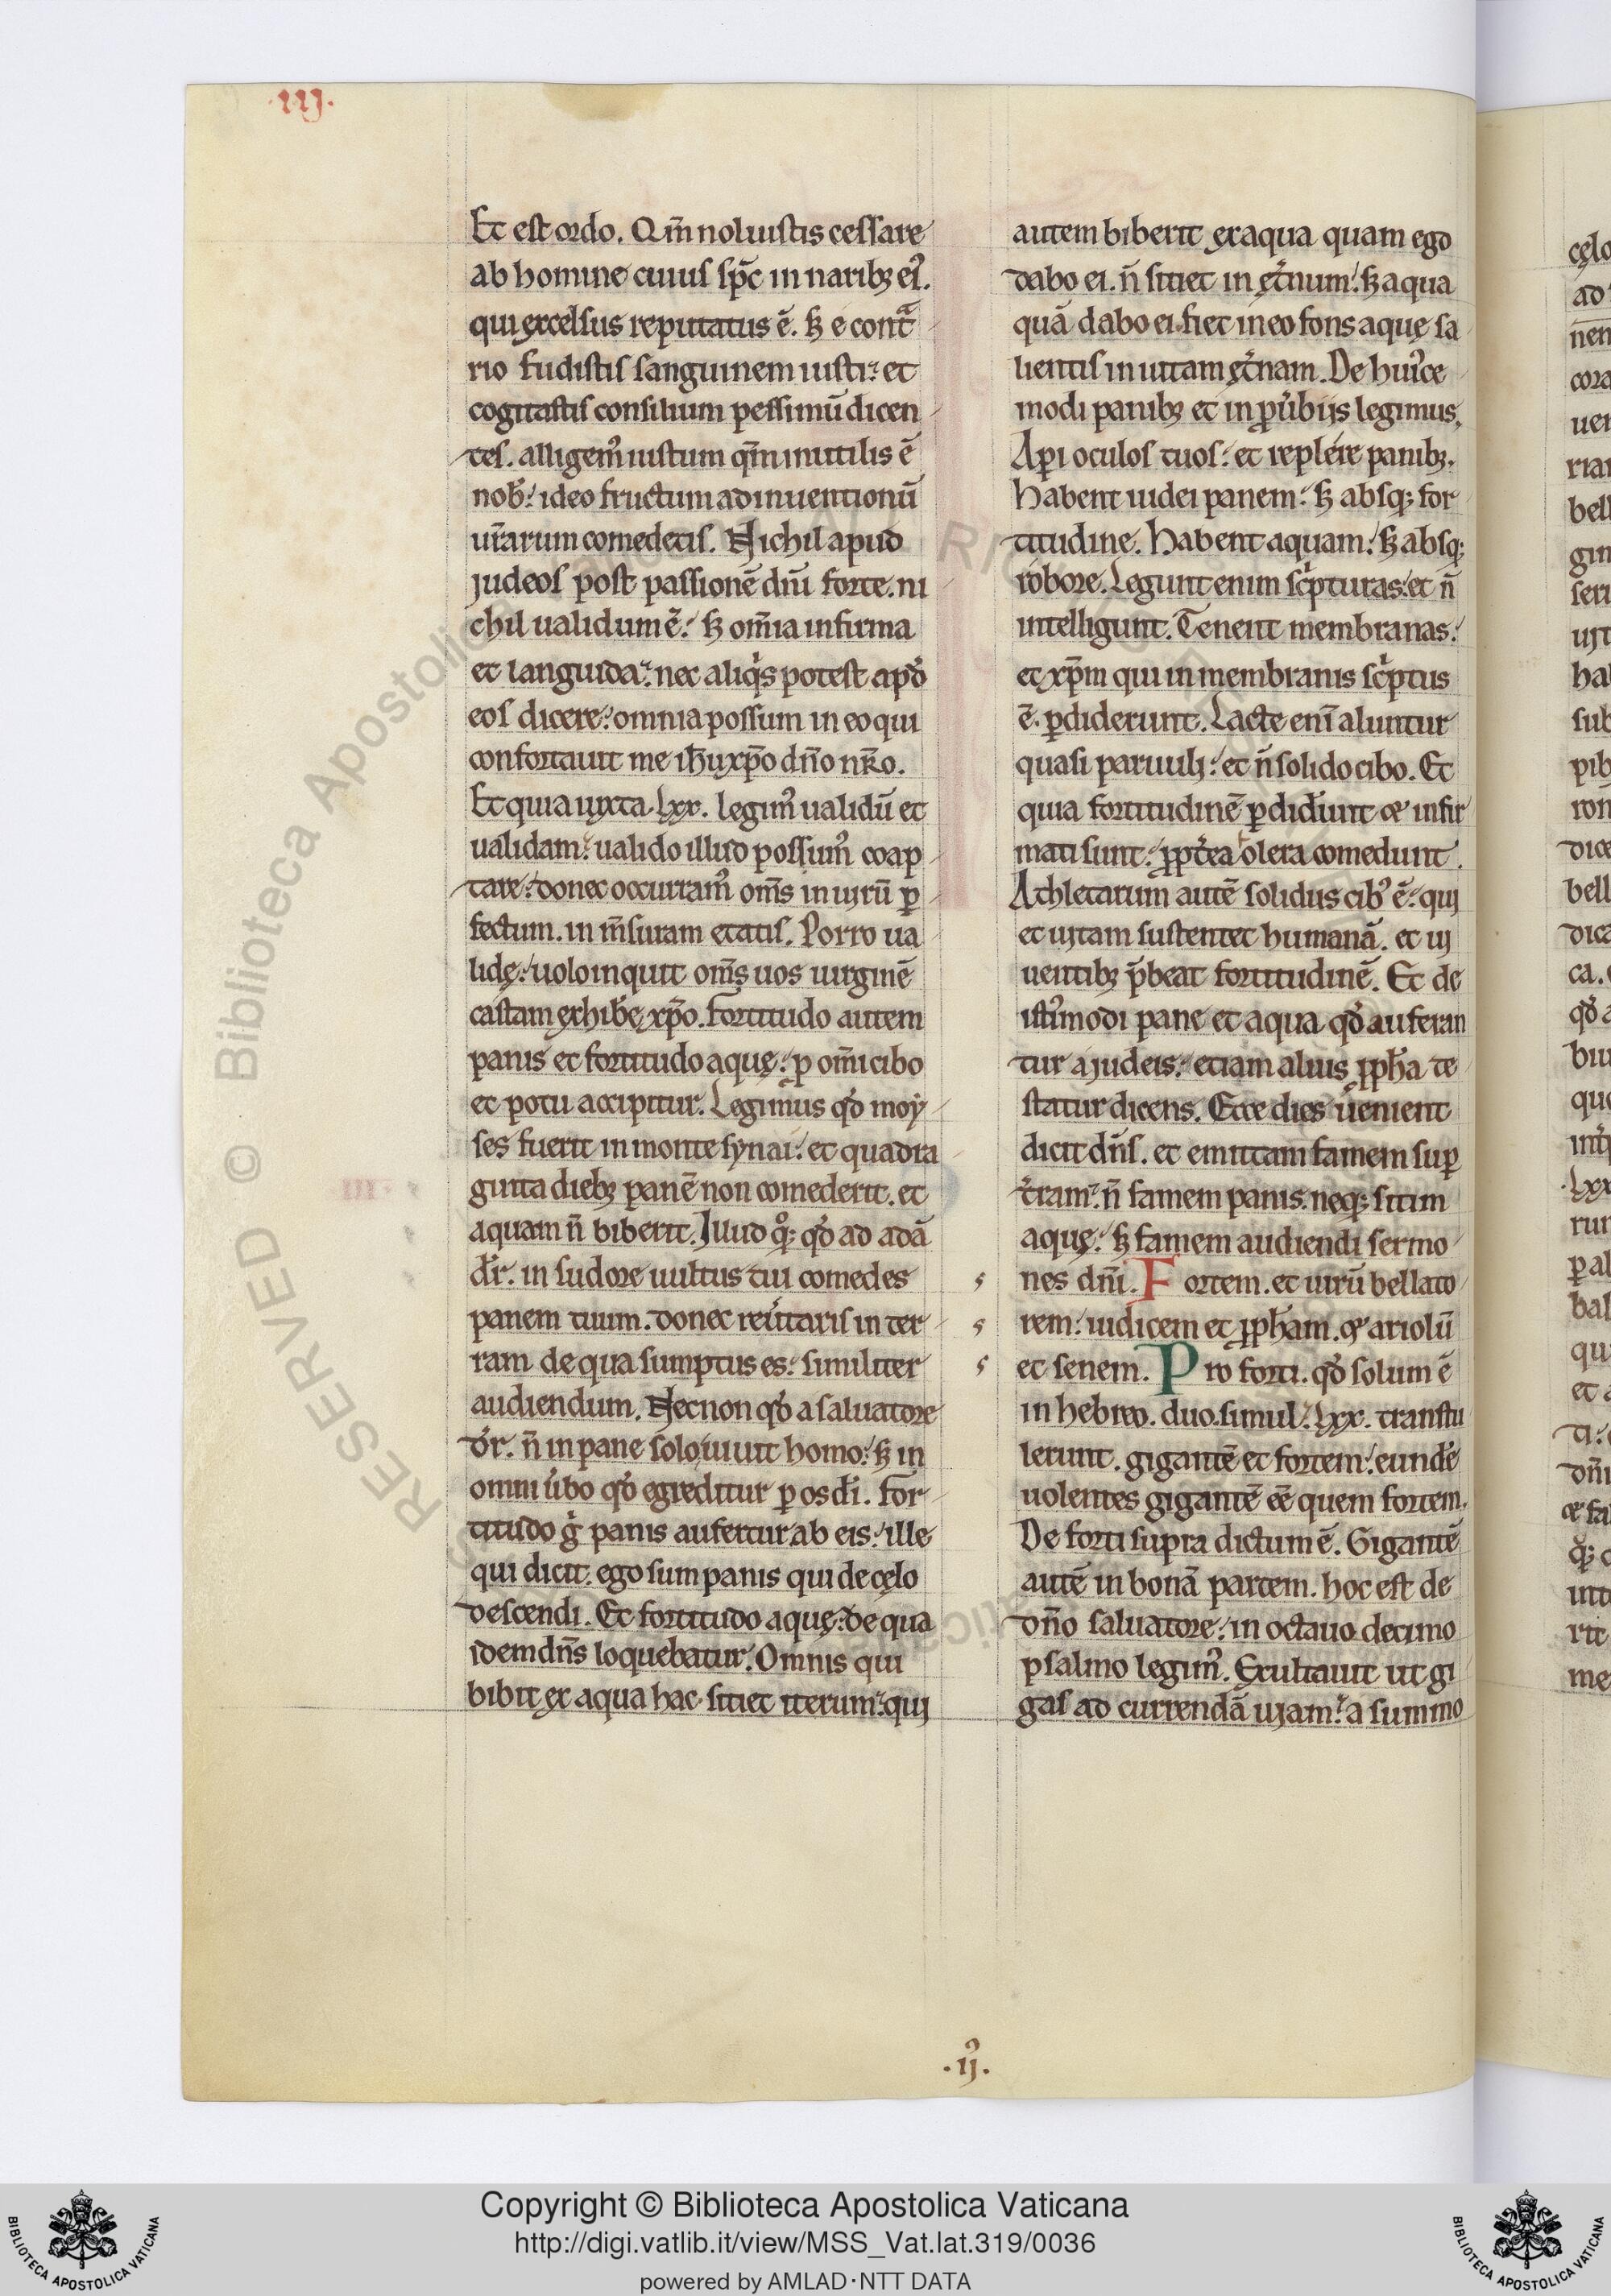 .iij.
Et est ordo. Qm̄ noluistis cessare
ab homine cuius sp̄c in naribꝫ ei᾽.
qui excelsus reputatus ē. sꝫ e contᵃ
rio fudistis sanguinem iusti: et
cogitastis consilium pessimū dicen
tes. alligem᾽ iustum qm̄ inutilis ē
nob̄: ideo fructum adinuentionū
ur̄arum comedetis. Nichil apud
judeos post passionē dn̄i forte. ni
chil ualidum ē: sꝫ om̄ia infirma
et languida: nec aliqⁱs potest apd̓
eos dicere: omnia possum in eo qui
confortauit me ih̄u xp̄o dn̄o nr̄o.
Et quia iuxta .lxx. legim᾽ ualidū et
ualidam: ualido illud possum᾽ coap
tare: donec occurram᾽ om̄s in uirū ꝑ
fectum. in m̄suram etatis. Porro ua
lidę: uolo inquit om̄s uos uirginē
castam exhibe xp̄o. Fortitudo autem
panis et fortitudo aquę: ꝑ om̄i cibo
et potu accipitur. Legimus qd̓ moy
ses fuerit in monte synai: et quadra
ginta diebꝫ panē non comederit. et
aquam n̄ biberit. Illud qͦꝫ qd̓ ad adā
dr̄. in sudore uultus tui comedes
panem tuum. donec reu̓taris in ter
ram de qua sumptus es: similiter
audiendum. Necnon qd̓ a saluatore
dr̄. n̄ in pane solo uiuit homo: sꝫ in
omni u̓bo qd̓ egreditur ꝑ os di̓. For
titudo gͥ panis aufertur ab eis: ille
qui dicit. ego sum panis qui de cęlo
descendi. Et fortitudo aquę: de qua
idem dn̄s loquebatur. Omnis qui
bibit ex aqua hac sitiet iterum: qui
autem biberit ex aqua quam ego
dabo ei. n̄ sitiet in ęt̓num: sꝫ aqua
quā dabo ei fiet in eo fons aquę sa
lientis in uitam ęt̓nam. De hui᾽ce
modi panibꝫ et in ꝓu̓biis legimus.
Aperi oculos tuos: et replere panibꝫ.
Habent iudei panem: sꝫ absqꝫ for
titudine. Habent aquam: sꝫ absqꝫ
robore. Legunt enim scⁱpturas: et n̄
intelligunt. Tenent membranas:
et xp̄m qui in membranis scⁱptus
ē. ꝑdiderunt. Lacte eni̅ aluntur
quasi paruuli: et n̄ solido cibo. Et
quia fortitudinē ꝑdid̓unt & infir
mati sunt: ꝓpt̓ea olera comedunt.
Athletarum autē solidus cib᾽ ē: qui
et uitam sustentet humanā. et ui
uentibꝫ p̄beat fortitudinē. Et de
isti᾽modi pane et aqua qd̓ auferan
tur a judeis: etiam alius ꝓph̄a te
statur dicens. Ecce dies uenient
dicit dn̄s. et emittam famem suꝑ
t̓ram: n̄ famem panis. neqꝫ sitim
aquę: sꝫ famem audiendi sermo
nes dn̄i. Fortem. et uirū bellato
rem: iudicem et ꝓph̄am. & ariolū
et senem. Pro forti. qd̓ solum ē
in hebreo. duo simul: lxx. transtu
lerunt. gigantē et fortem: eund̓e
uolentes gigantē eē quem fortem.
De forti supra dictum ē. Gigantē
autē in bonā partem. hoc est de
dn̄o saluatore: in octauo decimo
psalmo legim᾽. Exultauit ut gi
gas ad currendā uiam: a summo
.ij᾽.
RESERVED © Biblioteca Apostolica
Copyright © Biblioteca Apostolica Vaticana
http://digi.vatlib.it/view/MSS_Vat.lat.319/0036
powered by AMLAD·NTT DATA
BIBLIOTECA APOSTOLICA VATICANA
BIBLIOTECA APOSTOLICA VATICANA